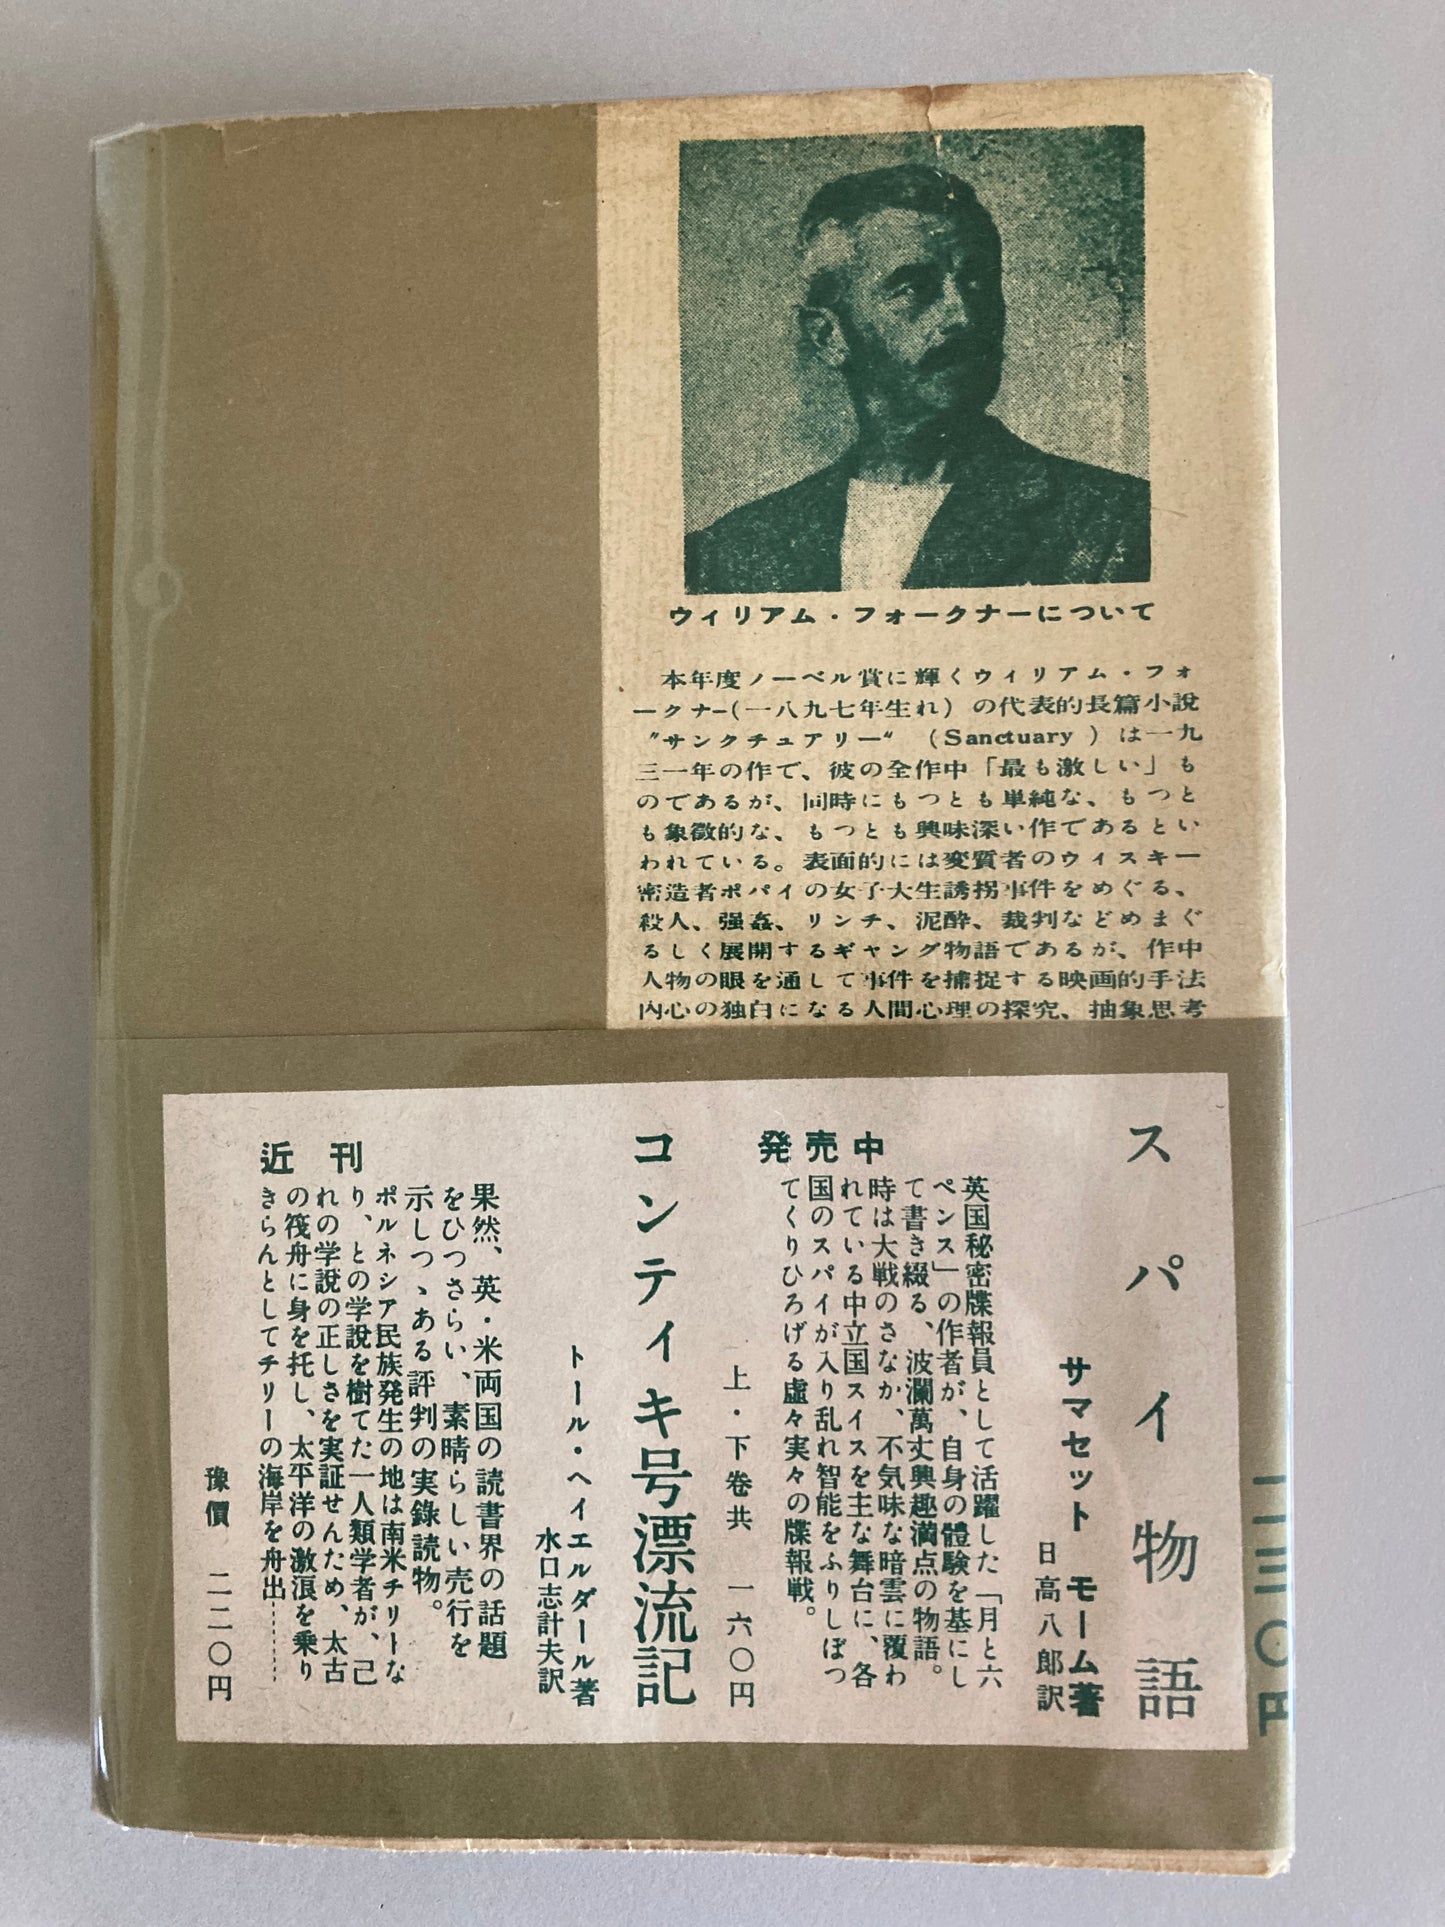 ウィリアム・フォークナーについて
本年度ノーベル賞に輝くウィリアム・フォ
ークナー(一八九七年生れ)の代表的長篇小說
〝サンクチュアリー〟(Sanctuary)は一九
三一年の作で、彼の全作中「最も激しい」も
のであるが、同時にもつとも単純な、もつと
も象徴的な、もつとも興味深い作であるとい
われている。表面的には変質者のウィスキー
密造者ポパイの女子大生誘拐事件をめぐる、
殺人、强姦、リンチ、泥酔、裁判などめまぐ
るしく展開するギャング物語であるが、作中
人物の眼を通して事件を捕捉する映画的手法
内心の独白になる人間心理の探究、抽象思考
二三〇円
スパイ物語
サマセット モーム著
日高八郎訳
発売中
英国秘密牒報員として活躍した「月と六
ペンス」の作者が、自身の體験を基にし
て書き綴る、波瀾萬丈興趣満点の物語。
時は大戦のさなか、不気味な暗雲に覆わ
れている中立国スイスを主な舞台に、各
国のスパイが入り乱れ智能をふりしぼつ
てくりひろげる虛々実々の牒報戦。
上・下巻共 一六〇円
コンティキ号漂流記
トール・ヘイエルダール著
水口志計夫訳
近刊
果然、英・米両国の読書界の話題
をひつさらい、素晴らしい売行を
示しつゝある評判の実錄読物。
ポルネシア民族発生の地は南米チリーな
り、との学說を樹てた一人類学者が、己
れの学說の正しさを実証せんため、太古
の筏舟に身を托し、太平洋の激浪を乗り
きらんとしてチリーの海岸を舟出………
豫價 二二〇円